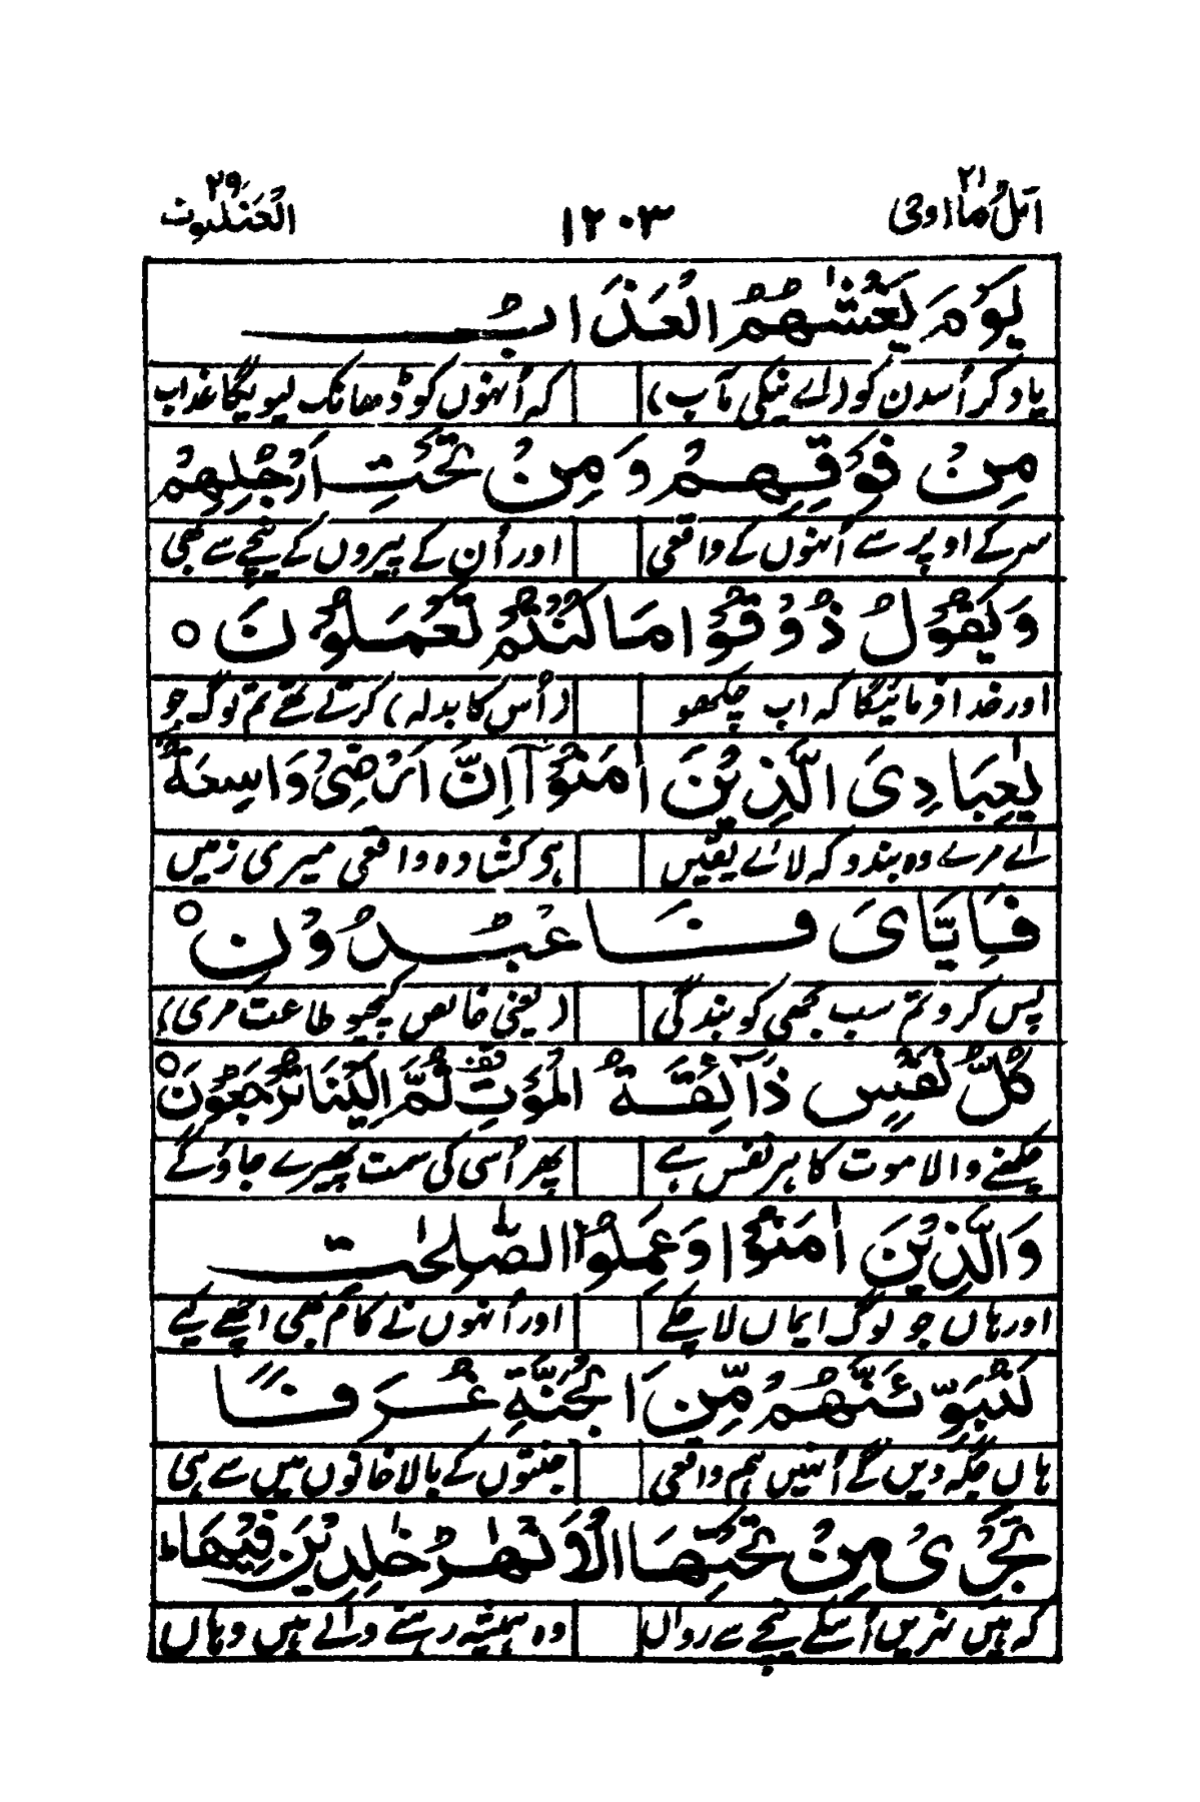 اتل ما اوحی ۲۱ ۱۲۰۳ العنکبوت ۲۹
یَوْمَ یَغْشٰىهُمُ الْعَذَابُ
یاد کر اُسدن کو (اے نیکی مآب) کہ اُنہوں کو ڈھانک لیویگا عذاب
مِنْ فَوْقِهِمْ وَمِنْ تَحْتِ اَرْجُلِهِمْ
سر کے اوپر سے اُنہوں کے واقعی اور اُن کے پیروں کے نیچے سے بھی
وَیَقُوْلُ ذُوْقُوْا مَا کُنْتُمْ تَعْمَلُوْنَ ○
اور خدا فرمائیگا کہ اب چکھو (اُس کا بدلہ) کرتے تھے تم لوگ جو
یٰعِبَادِیَ الَّذِیْنَ اٰمَنُوْۤا اِنَّ اَرْضِیْ وَاسِعَةٌ
اے مرے وہ بندو کہ لائے یقیں ہی کشادہ واقعی میری زمیں
فَاِیَّایَ فَاعْبُدُوْنِ ○
پس کرو تم سب مجھی کو بندگی (یعنی خالص کیجیو طاعت مری)
کُلُّ نَفْسٍ ذَآئِقَةُ الْمَوْتِ ثُمَّ اِلَیْنَا تُرْجَعُوْنَ ○
چکھنے والا موت کا ہر نفس ہے پھر اُسی کی سمت پھیرے جاؤگے
وَالَّذِیْنَ اٰمَنُوْا وَعَمِلُوا الصّٰلِحٰتِ
اور ہاں جو لوگ ایماں لا چکے اور اُنہوں نے کام بھی اچھے کیے
لَنُبَوِّئَنَّهُمْ مِّنَ الْجَنَّةِ غُرَفًا
ہاں جگہ دیں گے اُنہیں ہم واقعی جنتوں کے بالا خانوں میں سے ہی
تَجْرِیْ مِنْ تَحْتِهَا الْاَنْهٰرُ خٰلِدِیْنَ فِیْهَا ؕ
کہ ہیں نہریں اُسکے نیچے سے رواں وہ ہمیشہ رہنے والے ہیں وہاں